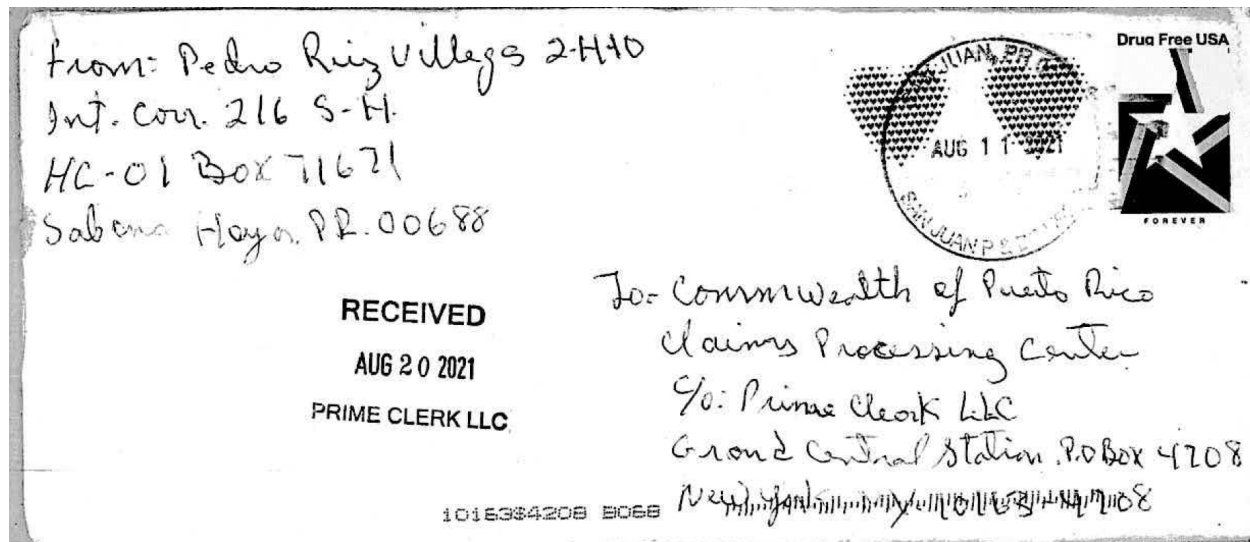 From: Pedro Ruiz Villegas 2-H-10
Int. Corr. 216 S-H.
HC-01 Box 71671
Sabana Hoyos, PR. 00688
Drug Free USA
SAN JUAN, PR
AUG 11 2021
SAN JUAN P &
FOREVER
RECEIVED
AUG 20 2021
PRIME CLERK LLC
To: Commwealth of Puerto Rico
Claims Processing Center
c/o: Prime Clerk LLC
Grand Central Station, PO Box 4708
New York
10163$4208 B068